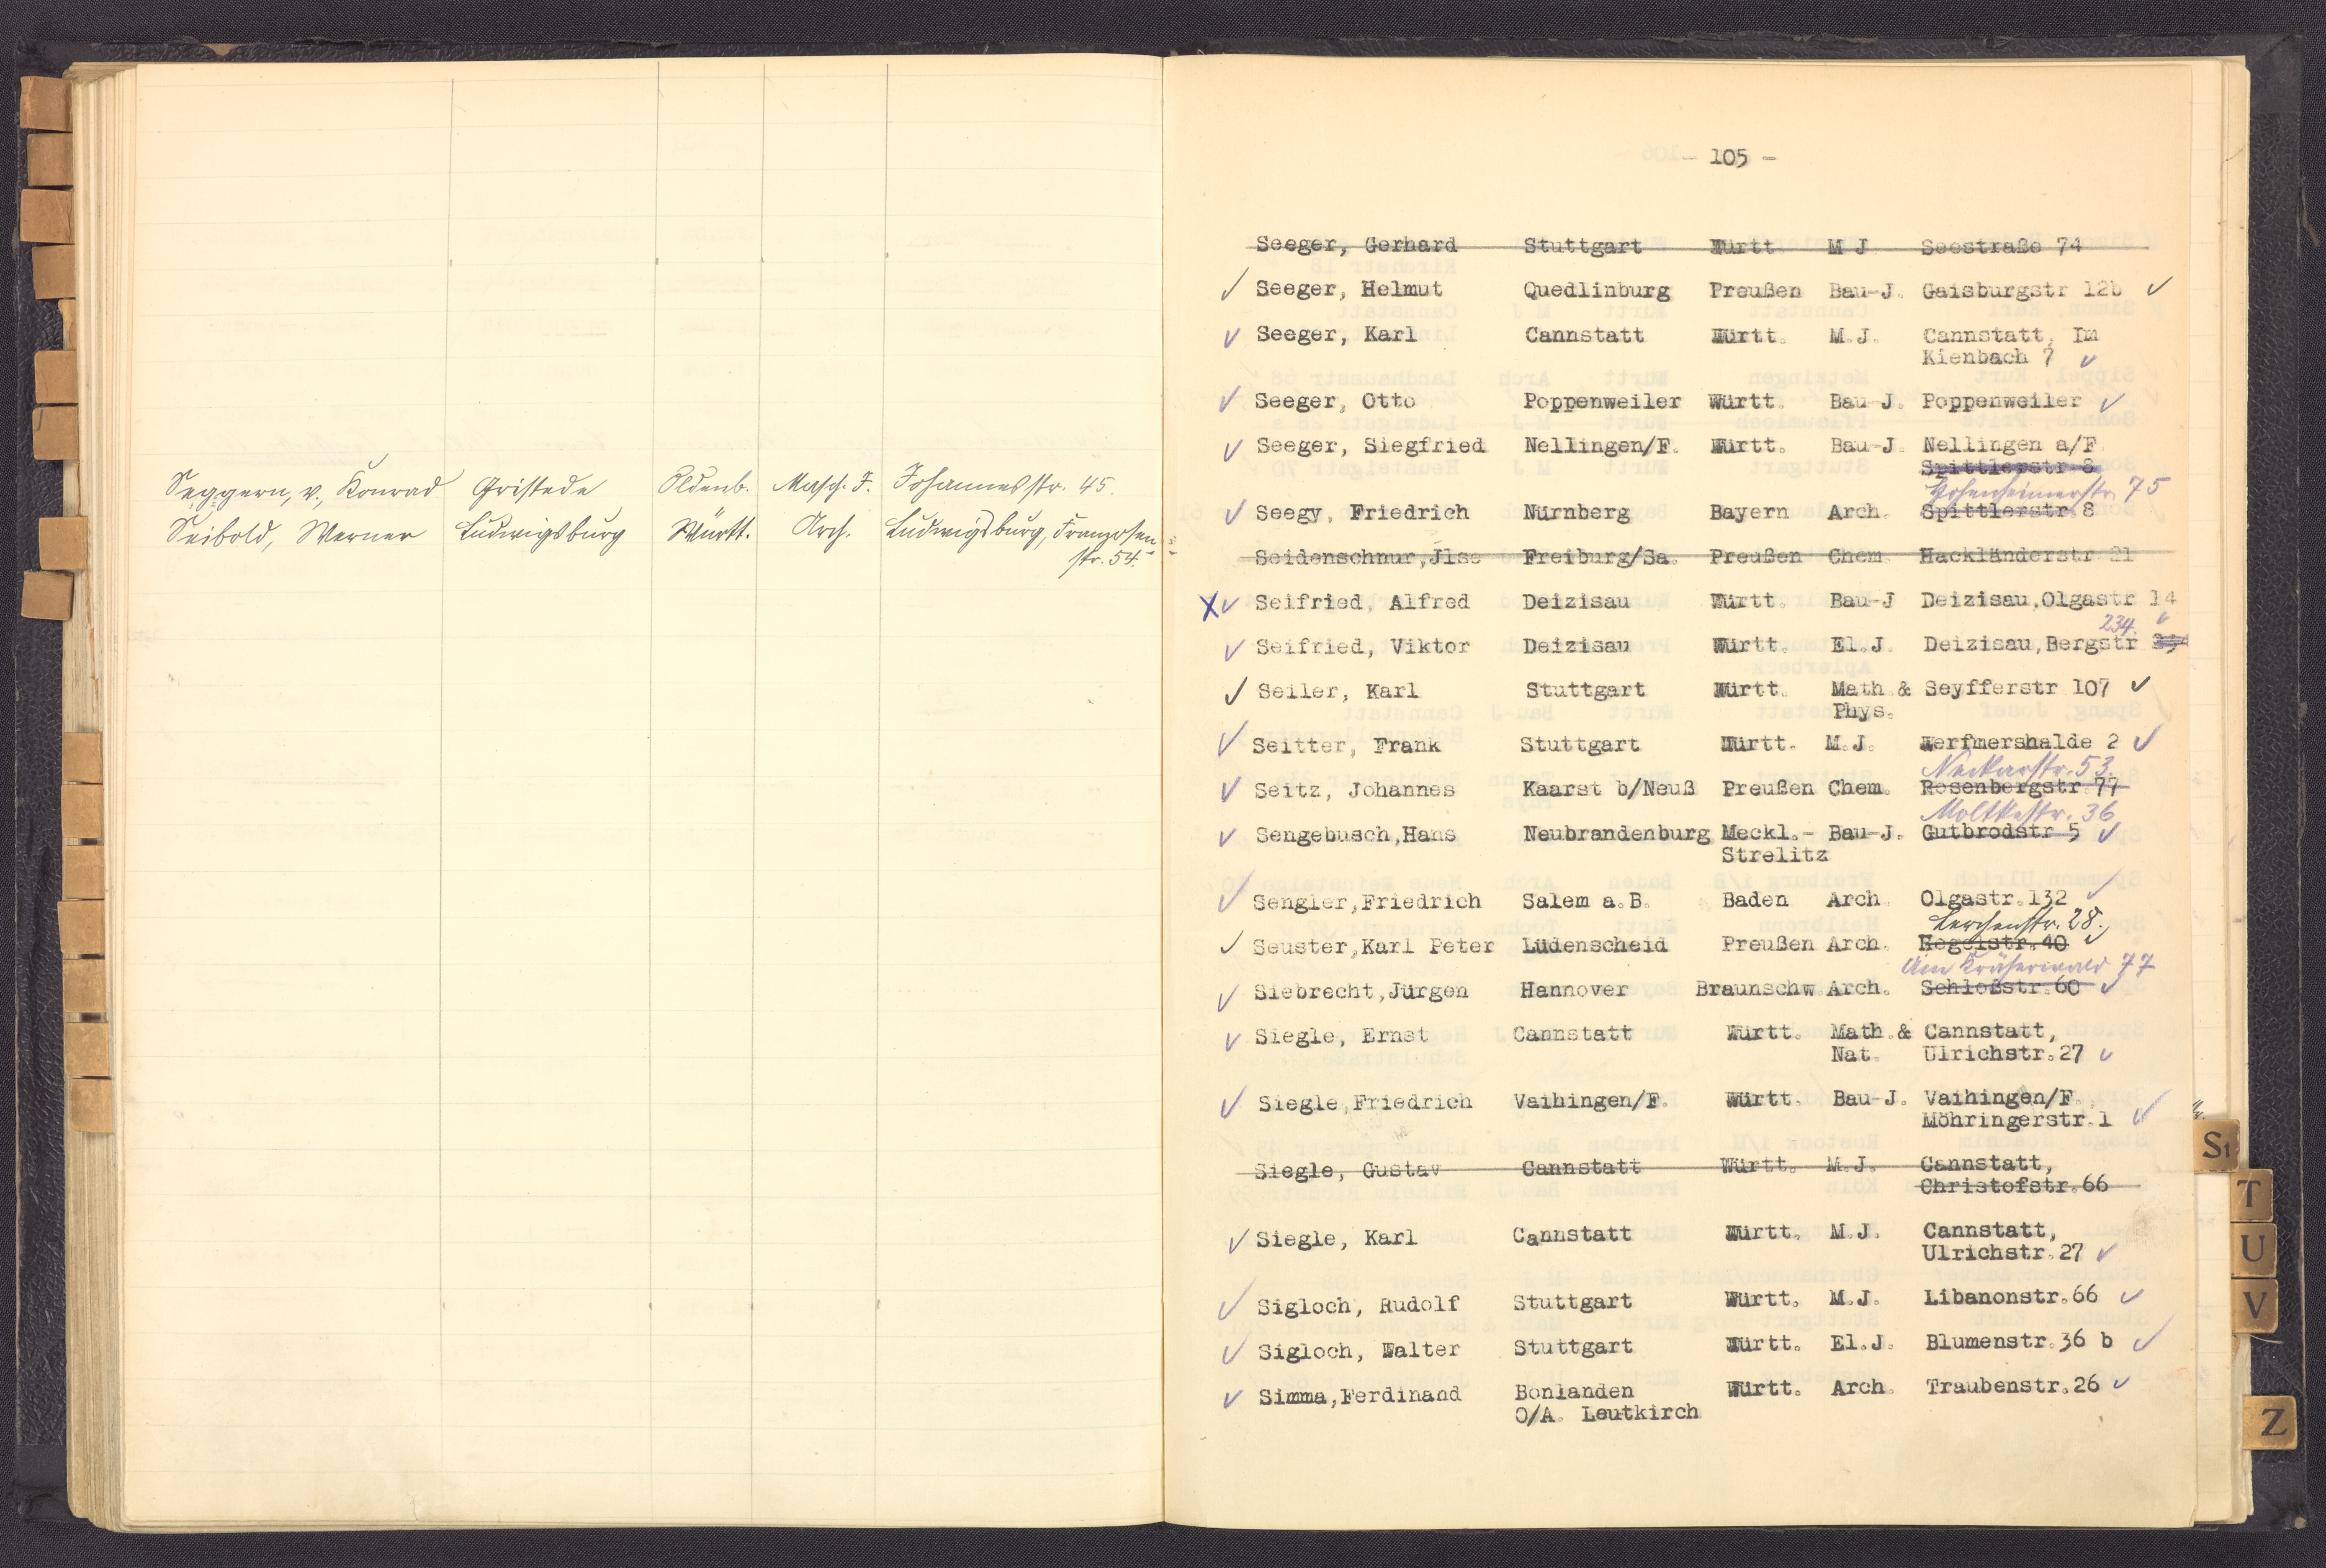 Seggern, v., Konrad Gristede Oldenb. Masch. J. Johannesstr. 45.
Seibold, Werner Ludwigsburg Württ. Arch. Ludwigsburg, Franzosen-
str. 54.
- 105 -
Seeger, Gerhard Stuttgart Württ. M J Seestraße 74
✓ Seeger, Helmut Quedlinburg Preußen Bau-J. Gaisburgstr 12b ✓
✓ Seeger, Karl Cannstatt Württ. M.J. Cannstatt, Im
Kienbach 7 ✓
✓ Seeger, Otto Poppenweiler Württ. Bau-J. Poppenweiler ✓
✓ Seeger, Siegfried Nellingen/F. Württ. Bau-J. Nellingen a/F.
Spittlerstr 8
Hohenheimerstr. 75
✓ Seegy, Friedrich Nürnberg Bayern Arch. Spittlerstr 8
Seidenschnur,Jlse Freiburg/Sa. Preußen Chem. Hackländerstr 21
X✓ Seifried, Alfred Deizisau Württ. Bau-J Deizisau,Olgastr 14
234. ✓
✓ Seifried, Viktor Deizisau Württ. El.J. Deizisau,Bergstr
✓ Seiler, Karl Stuttgart Württ. Math.& Seyfferstr 107 ✓
Phys.
✓ Seitter, Frank Stuttgart Württ. M.J. Werfmershalde 2 ✓
Neckarstr. 53.
✓ Seitz, Johannes Kaarst b/Neuß Preußen Chem. Rosenbergstr 77
Moltkestr. 36
✓ Sengebusch,Hans Neubrandenburg Meckl.- Bau-J. Gutbrodstr 5 ✓
Strelitz
✓ Sengler,Friedrich Salem a.B. Baden Arch. Olgastr.132 ✓
Lerchenstr. 28.
✓ Seuster,Karl Peter Lüdenscheid Preußen Arch. Hegelstr.40 ✓
Am Kräherwald 77
✓ Siebrecht,Jürgen Hannover Braunschw Arch. Schloßstr.60 ✓
✓ Siegle, Ernst Cannstatt Württ. Math.& Cannstatt,
Nat. Ulrichstr.27 ✓
✓ Siegle,Friedrich Vaihingen/F. Württ. Bau-J. Vaihingen/F.
Möhringerstr.1 ✓
Siegle, Gustav Cannstatt Württ. M.J. Cannstatt,
Christofstr.66
✓ Siegle, Karl Cannstatt Württ. M.J. Cannstatt,
Ulrichstr.27 ✓
✓ Sigloch, Rudolf Stuttgart Württ. M.J. Libanonstr.66 ✓
✓ Sigloch, Walter Stuttgart Württ. El.J. Blumenstr.36 b ✓
✓ Simma,Ferdinand Bonlanden Württ. Arch. Traubenstr.26 ✓
O/A. Leutkirch
St
T
U
V
Z